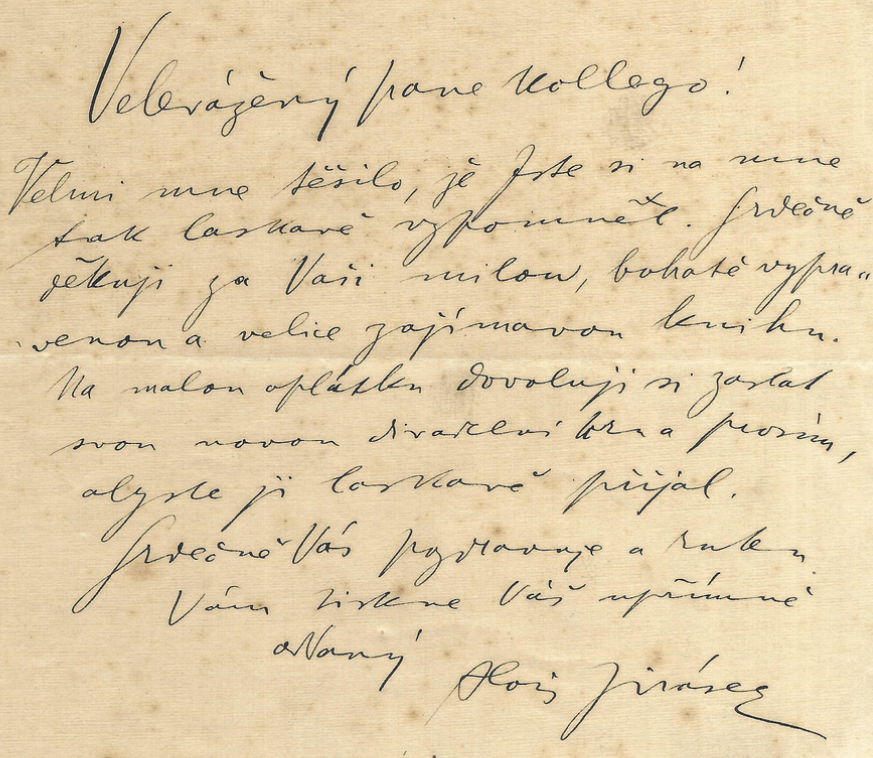 Velevážený pane kollego!
Velmi mne těšilo, že jste si na mne
tak laskavě vzpomněl. Srdečně
děkuji za Vaši milou, bohatě vypra„
„venou a velice zajímavou knihu.
Na malou oplátku dovoluji si zaslat
svou novou divadelní hru a prosím,
abyste ji laskavě přijal.
Srdečně Vás pozdravuje a ruku
Vám tiskne Váš upřímně
oddaný
Alois Jirásek